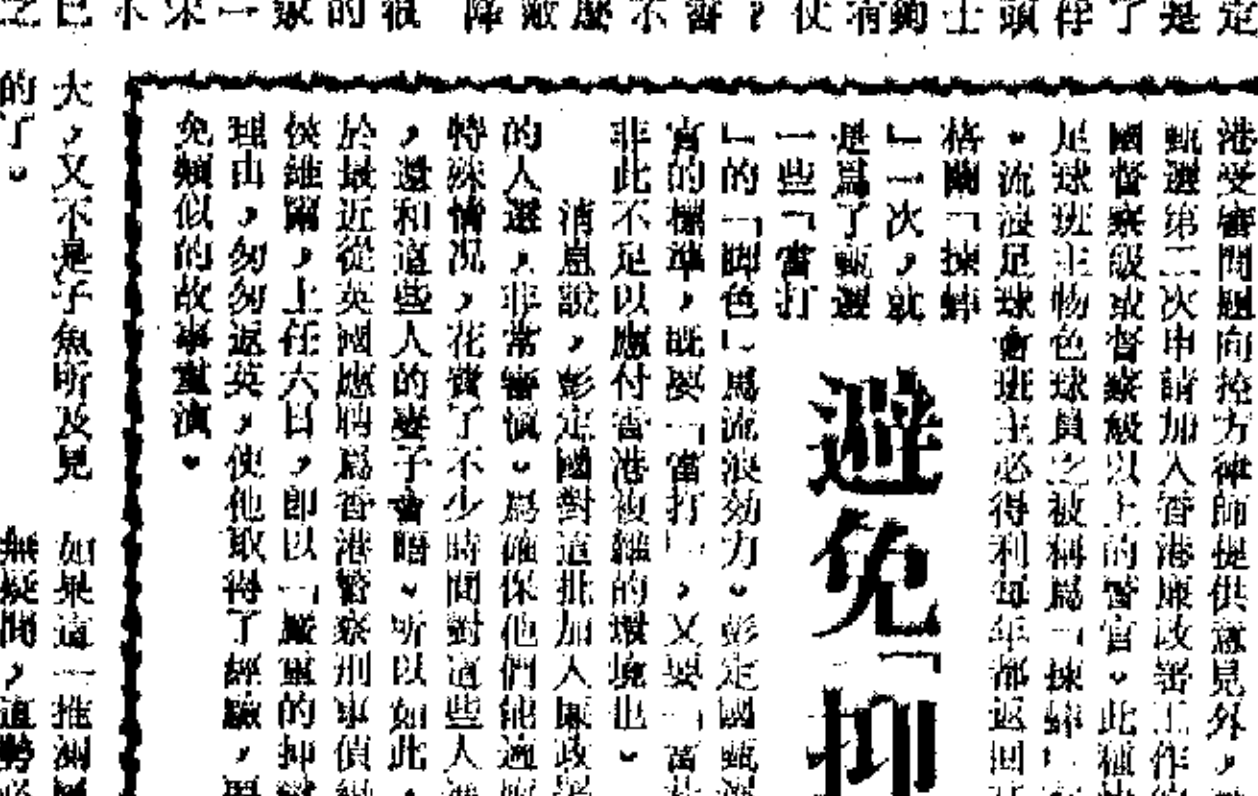 港受審問題向控方律師提供意見外，
甄選第二次申請加入香港廉政署工作的
國督察級或督察級以上的警官。此種
足球班主物色球員之被稱爲「揀蟀」
。流浪足球會班主必得利每年都返回
格蘭「揀蟀
」一次，就
是爲了甄選
一些「當打
」的「脚色」爲流浪効力。彭定國甄選
官的標準，既要「當打」，又要「
非此不足以應付香港複雜的環境也。
消息說，彭定國對這批加入廉政署
的人選，非常審慎。爲確保他們能適應
特殊情况，花費了不少時間對這些人
，還和這些人的妻子會晤。所以如此，
於最近從英國應聘爲香港警察刑事偵緝
侯維爾，上任六日，即以「嚴重的抑鬱
理由，匆匆返英，使他取得了經驗，
免類似的故事重演。
避免「抑
大，又不是子魚所及見
的了。
如果這一推測
無疑問，這勢必